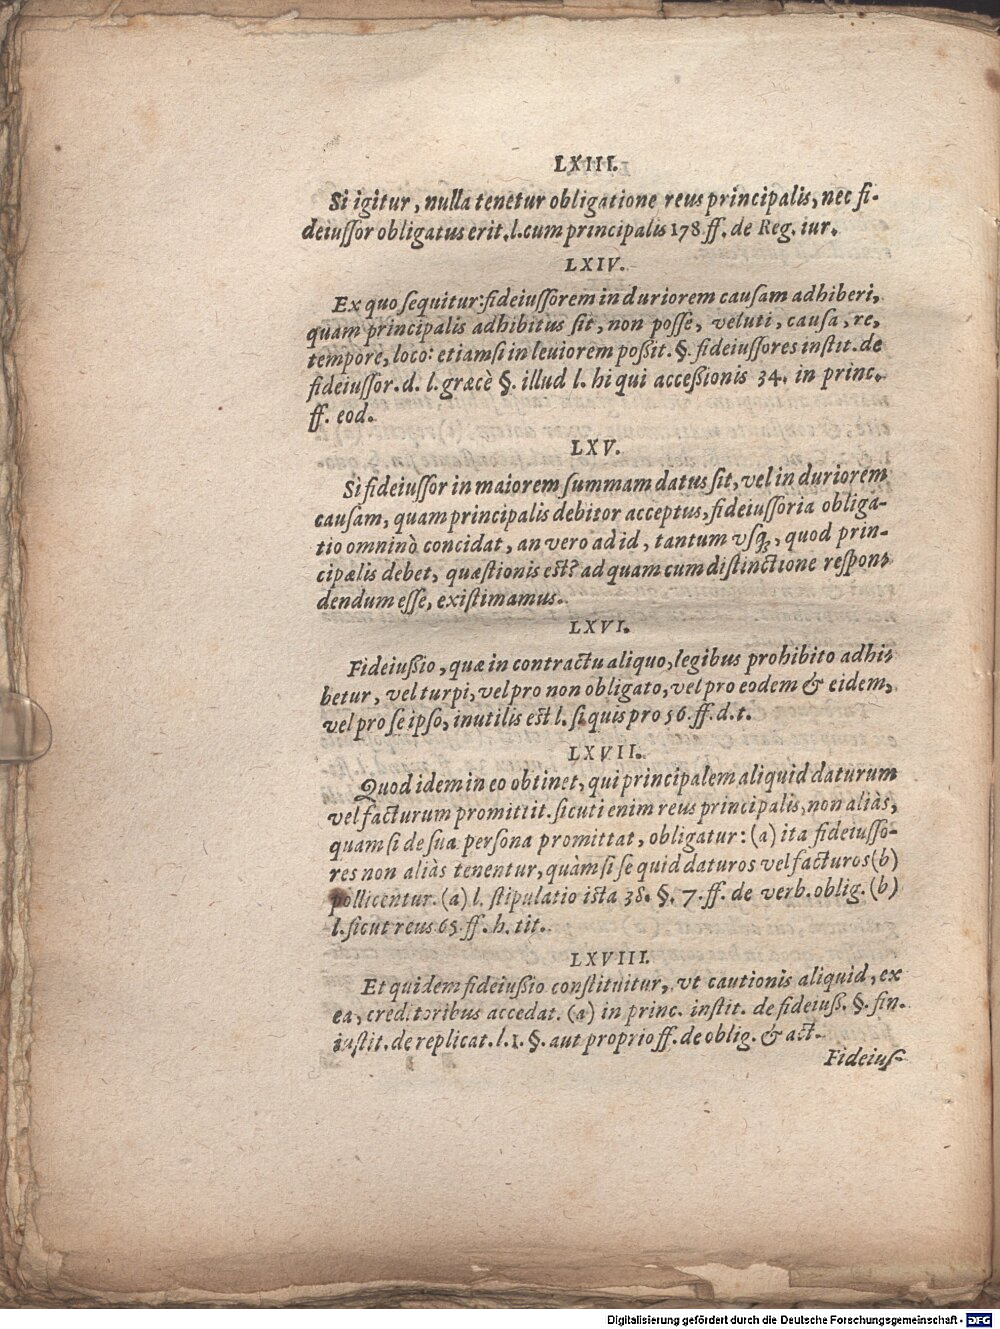 LXIII.
Si igitur, nulla tenetur obligatione reus principalis, nec fi-
deiuſſor obligatus erit. l. cum principalis 178 ff. de Reg. iur.
LXIV.
Ex quo ſequitur: fideiuſſorem in duriorem cauſam adhiberi,
quam principalis adhibitus ſit, non poſſe, veluti, cauſa, re,
tempore, loco: etiamſi in leuiorem poßit. §. fideiuſſores inſtit. de
fideiuſſor. d. l. græcè §. illud l. hi qui acceßionis 34. in princ.
ff. eod.
LXV.
Si fideiuſſor in maiorem ſummam datus ſit, vel in duriorem
cauſam, quam principalis debitor acceptus, fideiuſſoria obliga-
tio omninò concidat, an vero ad id, tantum vſq;, quod prin-
cipalis debet, quæſtionis est? ad quam cum diſtinctione reſpon-
dendum eſſe, exiſtimamus.
LXVI.
Fideiußio, quæ in contractu aliquo, legibus prohibito adhi-
betur, vel turpi, vel pro non obligato, vel pro eodem & eidem,
vel pro ſe ipſo, inutilis est l. ſi quis pro 56. ff. d. t.
LXVII.
Quod idem in eo obtinet, qui principalem aliquid daturum
vel facturum promittit. ſicuti enim reus principalis, non aliàs,
quam ſi de ſua perſona promittat, obligatur: (a) ita fideiuſſo-
res non aliàs tenentur, quàm ſi ſe quid daturos vel facturos (b)
pollicentur. (a) l. ſtipulatio iſta 38. §. 7. ff. de verb. oblig. (b)
l. ſicut reus 65 ff. h. tit.
LXVIII.
Et quidem fideiußio conſtituitur, vt cautionis aliquid, ex
ea, creditoribus accedat. (a) in princ. inſtit. de fideiuß. §. fin.
inſtit. de replicat. l. 1. §. aut proprio ff. de oblig. & act.
Fideiuſ-
Digitalisierung gefördert durch die Deutsche Forschungsgemeinschaft - DFG